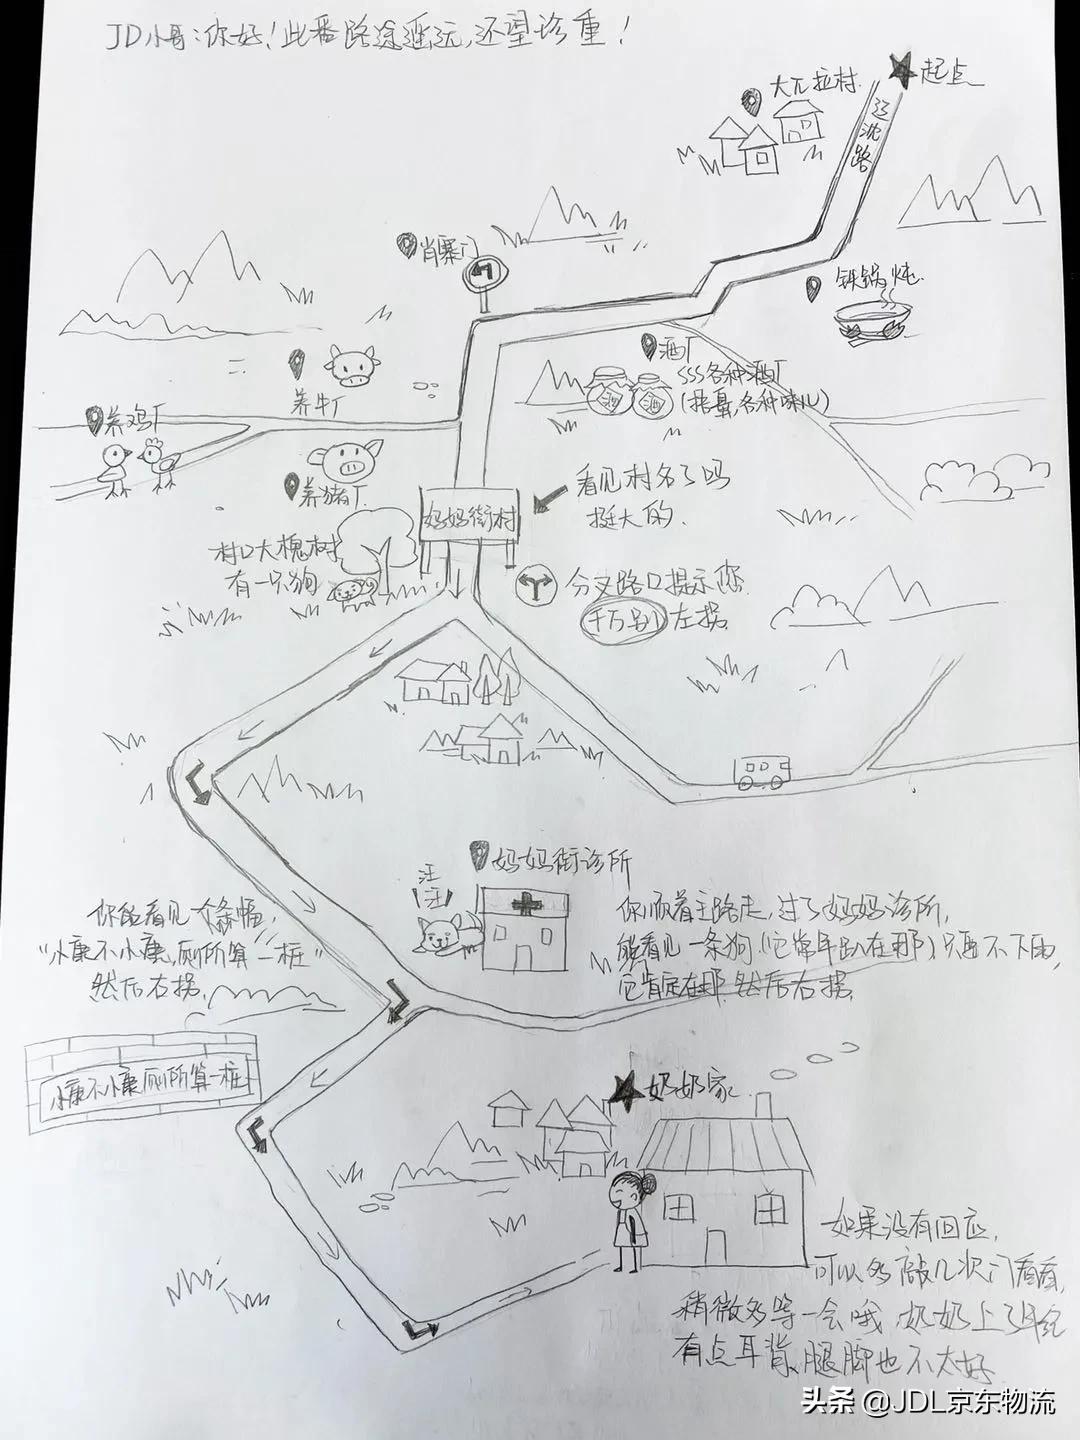 JD小哥:你好!此番路途遥远,还望珍重!
起点
大兀拉村
辽沈路
肖寨门
铁锅炖
酒厂
SSS各种酒厂
(招鼻,各种味儿)
酒
酒
养牛厂
养鸡厂
养猪厂
妈妈街村
看见村名了吗
挺大的
村口大槐树
有一只狗
分叉路口提示您
千万别左拐
妈妈街诊所
汪
汪!
你顺着主路走,过了妈妈诊所,
能看见一条狗(它常年趴在那)只要不下雨,
它肯定在那.然后右拐
你能看见大条幅,
"小康不小康,厕所算一桩"
然后右拐.
小康不小康厕所算一桩
奶奶家
如果没有回应,
可以多敲几次门看看,
稍微多等一会哦,奶奶上了年纪
有点耳背、腿脚也不太好
头条 @JDL京东物流